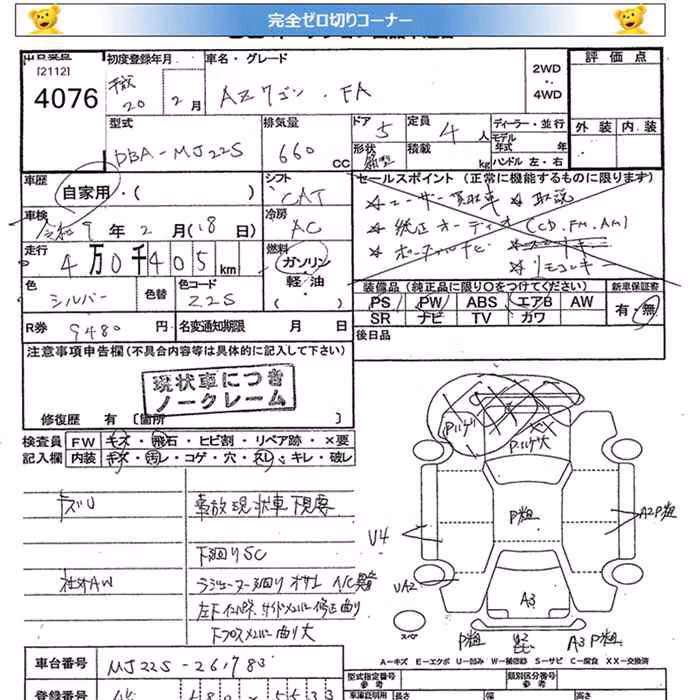 完全ゼロ切りコーナー
[2112]
4076
初度登録年月
平成
20 2月
車名・グレード
AZワゴン . FA
2WD
4WD
評価点
外装 内装
型式
DBA-MJ22S
排気量
660 CC
ドア 5
定員 4 人
形状
積載 kg
ディーラー・並行
モデル年式 年式
ハンドル 左・右
車歴
自家用・( )
シフト
CAT
セールスポイント (正常に機能するものに限ります)
☆ ユーザー買取車 ☆ 取説
☆ 純正オーディオ (CD.FM.AM)
☆ ポータブルナビ
☆ リモコンキー
車検
令和9年2月(18日)
冷房
AC
走行
4万0千405km
燃料
ガソリン・軽油・( )
色
シルバー
色替
色コード
Z2S
装備品 (純正品に限り〇をつけてください)
PS PW ABS エアB AW
SR ナビ TV カワ
新車保証書
有・無
R券 9480円
名変通知期限 月 日
後日品
注意事項申告欄 (不具合内容等は具体的に記入して下さい)
現状車につき
ノークレーム
修復歴 有 〔箇所 〕
検査員
記入欄
FW キズ・飛石・ヒビ割・リペア跡・×要
内装 キズ・汚レ・コゲ・穴・スレ・キレ・破レ
キズU
事故現状車下見要
下廻りSC
社外AW
ラジエーター廻りオサエ A/C
左下
下フロスメンバー曲り大
Pハゲ
Pハゲ大
P粗
U4
A2P粗
UA2
A3
スペア
P粗
A3P粗
A-キズ E-エクボ U-凹み W-補修跡 S-サビ C-腐食 XX-交換済
車台番号 MJ22S-261783
登録番号
型式指定番号
参考
類別区分番号
参考
長さ